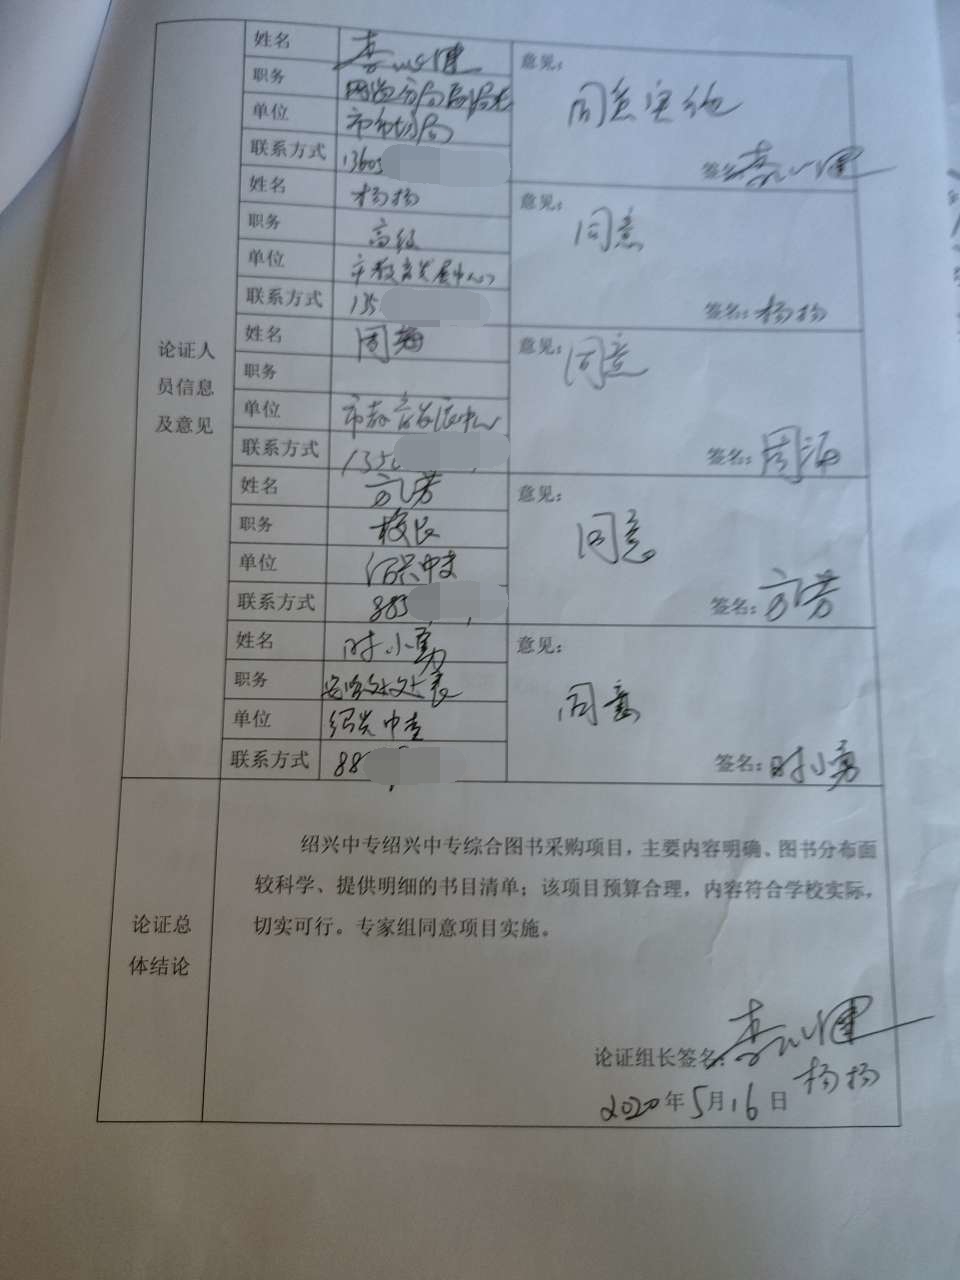 论证人
员信息
及意见
姓名
职务
单位 市市场局
联系方式 13605
意见:
同意实施
签名:
姓名 杨扬
职务 高级
单位 市教育发展中心
联系方式 135
意见:
同意
签名: 杨扬
姓名 周海
职务
单位 市教育发展中心
联系方式 135
意见:
同意
签名: 周海
姓名
职务 校长
单位 绍兴中专
联系方式 885
意见:
同意
签名:
姓名 时小勇
职务
单位 绍兴中专
联系方式 88
意见:
同意
签名: 时小勇
论证总
体结论
绍兴中专绍兴中专综合图书采购项目，主要内容明确、图书分布面
较科学、提供明细的书目清单；该项目预算合理，内容符合学校实际，
切实可行。专家组同意项目实施。
论证组长签名:
杨扬
2020年5月16日